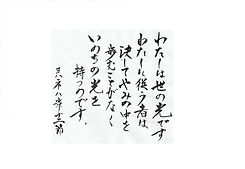 わたしは世の光です
わたしに従う者は、
決してやみの中を
歩むことがなく
いのちの光を
持つのです。
八章十二節